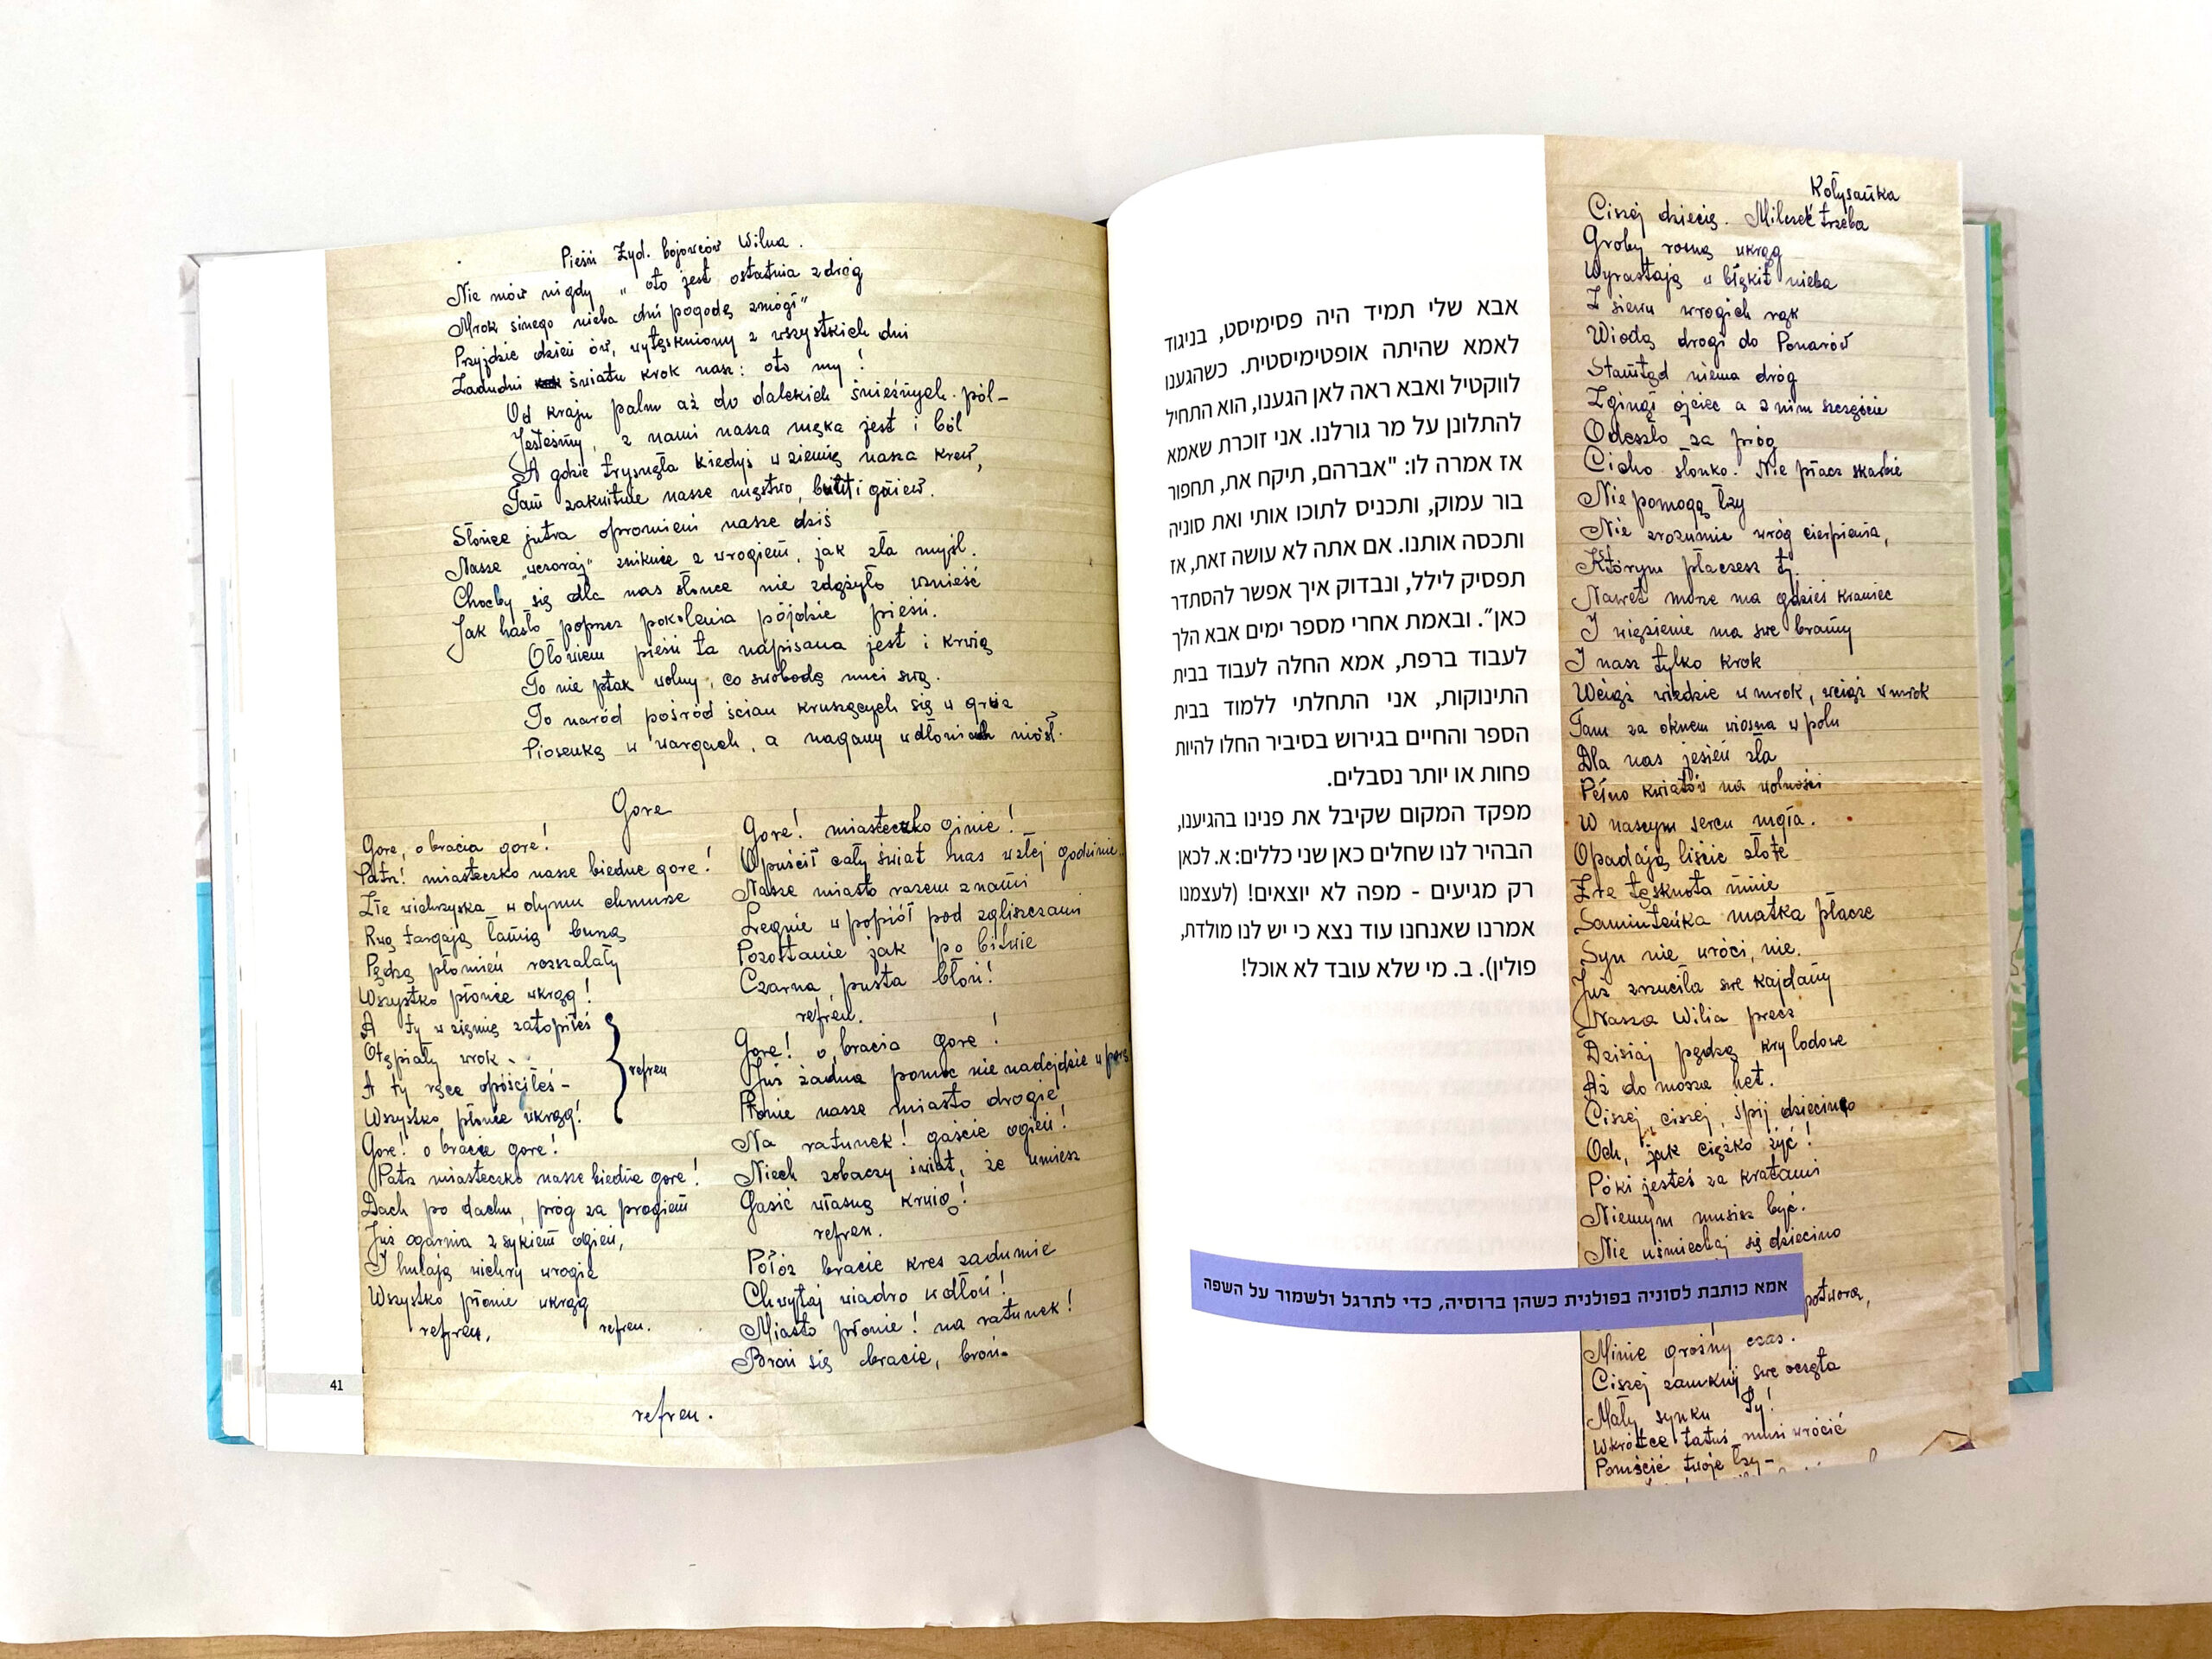 Pieśń Żyd. bojowców Wilna.
Nie mów nigdy „oto jest ostatnia z dróg
Mrok sinego nieba dni pogodę zmógł"
Przyjdzie dzień ów, wytęskniony z wszystkich dni
Zadudni światu krok nasz: oto my!
Od kraju palm aż do dalekich śnieżnych pól –
Jesteśmy, z nami nasza męka jest i ból
A gdzie trysnęła kiedyś w ziemię nasza krew,
Tam zakwitnie nasze męstwo, bunt i gniew.
Słońce jutra opromieni nasze dziś
Nasze „wczoraj" zniknie z wrogiem, jak zła myśl.
Choćby się dla nas słońce nie zdążyło wznieść
Jak hasło poprzez pokolenia pójdzie pieśń.
Ołowiem pieśń ta napisana jest i krwią
To nie ptak wolny, co swobodę nuci swą.
To naród pośród ścian kruszących się w gruz
Piosenkę w wargach, a nagany w dłoniach niósł.
Gore
Gore, o bracia gore!
Patrz! miasteczko nasze biedne gore!
Złe wichrzyska w dymu chmurze
Rwą targają łamią burzą
Pędzą płomień rozszalały
Wszystko płonie wkrąg!
A ty w ziemię zatopiłeś
Otępiały wrok
A ty ręce opóściłeś –
Wszystko płonie wkrąg!
refren
Gore! o bracie gore!
Patrz miasteczko nasze biedne gore!
Dach po dachu, próg za progiem
Już ogarnia z sykiem ogień,
I hulają wichry wrogie
Wszystko płonie wkrąg
refren, refren.
Gore! miasteczko ginie!
Opuścił cały świat nas w złej godzinie
Nasze miasto razem z nami
Legnie w popiół pod zgliszczami
Pozostanie jak po bitwie
Czarna, pusta błoń!
refren.
Gore! o bracia gore!
Już żadna pomoc nie nadejdzie w porę
Płonie nasze miasto drogie
Na ratunek! gaście ogień!
Niech zobaczy świat, że umiesz
Gasić własną krwią!
refren.
Połóż bracie kres zadumie
Chwytaj wiadro w dłoń!
Miasto płonie! na ratunek!
Broń się bracie, broń–
refren.
41
אבא שלי תמיד היה פסימיסט, בניגוד
לאמא שהיתה אופטימיסטית. כשהגענו
לווקטיל ואבא ראה לאן הגענו, הוא התחיל
להתלונן על מר גורלנו. אני זוכרת שאמא
אז אמרה לו: "אברהם, תיקח את, תחפור
בור עמוק, ותכניס לתוכו אותי ואת סוניה
ותכסה אותנו. אם אתה לא עושה זאת, אז
תפסיק לילל, ונבדוק איך אפשר להסתדר
כאן". ובאמת אחרי מספר ימים אבא הלך
לעבוד ברפת, אמא החלה לעבוד בבית
התינוקות, אני התחלתי ללמוד בבית
הספר והחיים בגירוש בסיביר החלו להיות
פחות או יותר נסבלים.
מפקד המקום שקיבל את פנינו בהגיענו,
הבהיר לנו שחלים כאן שני כללים: א. לכאן
רק מגיעים - מפה לא יוצאים! (לעצמנו
אמרנו שאנחנו עוד נצא כי יש לנו מולדת,
פולין). ב. מי שלא עובד לא אוכל!
אמא כותבת לסוניה בפולנית כשהן ברוסיה, כדי לתרגל ולשמור על השפה
Kołysańka
Ciszej dziecię. Milczeć trzeba
Groby rosną wkrąg
Wyrastają w błękit nieba
Z siewu wrogich rąk
Wiodą drogi do Ponarów
Stamtąd niema dróg
Zginął ojciec a z nim szczęście
Odeszło za próg
Cicho słonko. Nie płacz skarbie
Nie pomogą łzy
Nie zrozumie wróg cierpienia,
Którym płaczesz ty.
Nawet morze ma gdzieś kraniec
I więzienie ma swe bramy
I nasz tylko krok
Wciąż wiedzie w mrok, wciąż w mrok
Tam za oknem wiosna w polu
Dla nas jesień zła
Pełno kwiatów na wolności
W naszym sercu mgła.
Opadają liście złote
Źre tęsknota mnie
Samiuteńka matka płacze
Syn nie wróci, nie.
Już zrzuciła swe kajdany
Nasza Wilia precz
Dzisiaj pędzą kry lodowe
Aż do morza het.
Ciszej, ciszej, śpij dziecino
Och, jak ciężko żyć!
Póki jesteś za kratami
Niemym musisz być.
Nie uśmiechaj się dziecino
potwora,
Minie groźny czas.
Ciszej zamknij swe oczęta
Mały synku Ty!
Wkrótce tatuś musi wrócić
Pomścić twoje łzy –